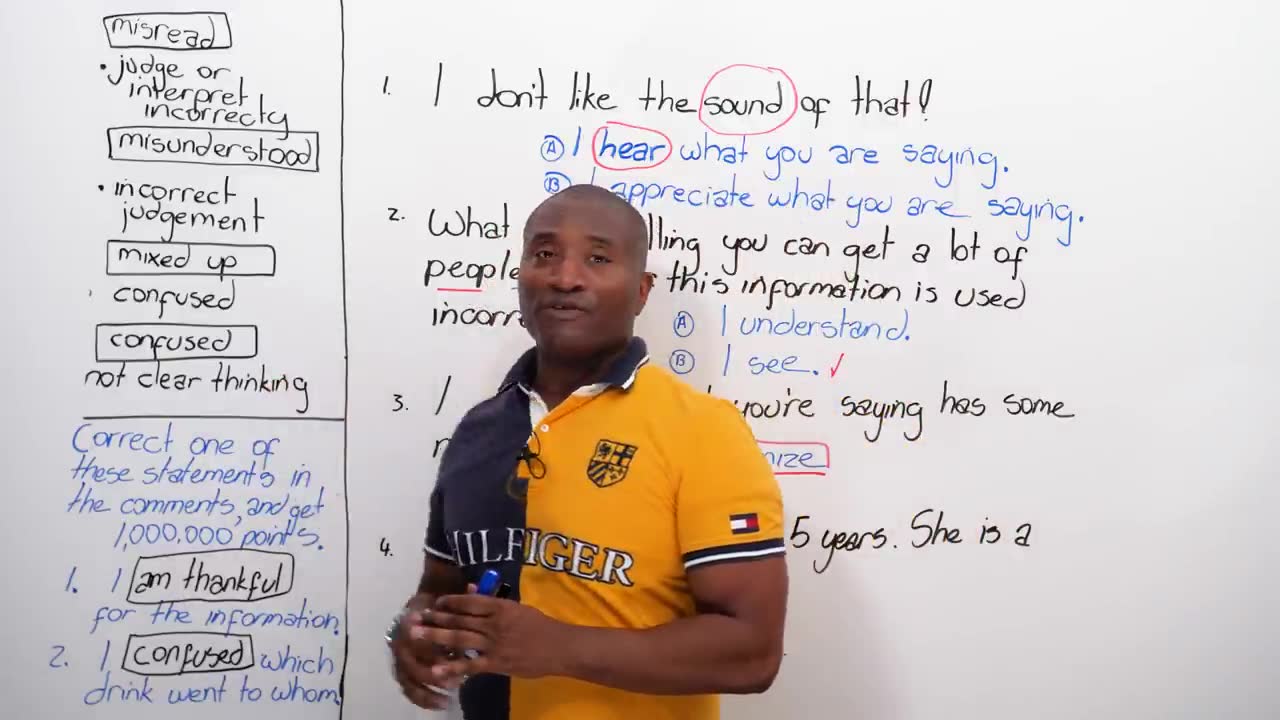 misread
• judge or
interpret
incorrecty
misunderstood
• incorrect
judgement
mixed up
confused
confused
not clear thinking
Correct one of
these statements in
the comments, and get
1,000,000 points.
1. I am thankful
for the information.
2. I confused which
drink went to whom.
1. I don't like the sound of that!
A I hear what you are saying.
B I appreciate what you are saying.
2. What lling you can get a lot of
people this information is used
incorr
A I understand.
B I see. ✓
3. I you're saying has some
nize
4. 5 years. She is a
HILFIGER